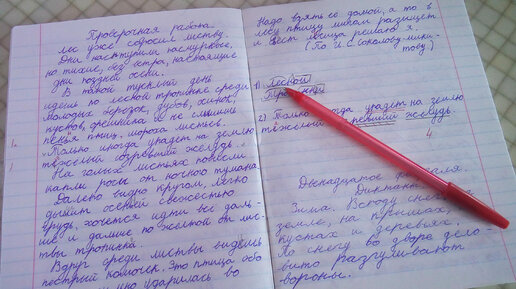 Проверочная работа
лы уже сбросил листву.
Дни наступили хмурые,
но тихие, без ветра, настоящие
дни поздней осени.
В такой тусклый день
идешь по лесной тропинке среди
молодых березок, дубов, осинок,
кустов, орешника и не слышишь
пенья птиц, шороха листьев.
Только иногда упадет на землю
тяжелый созревший желудь.
На голых листьях повисли
капли росы от ночного тумана
Далеко видно кругом, легко
дышит осеней свежестью
грудь, хочется идти всё даль-
ше и дальше по желтой от лис-
твы тропинки.
Вдруг среди листвы видишь
пестрый комочек. Это птица
ударилась во
Надо взять её домой, а то в
лесу птицу мигом разыщет
и съест лисица решаю я.
(По И. С. Соколову-мики-
тову)
1) Лесной
Тропинки
2) Только иногда упадет на землю
тяжелый созревший желудь.
4
Двенадцатое февраля.
Диктант.
Зима. Всюду снег: на
земле, на крышах,
кустах и деревьях.
По снегу во дворе дело-
вито разгуливают
вороны.